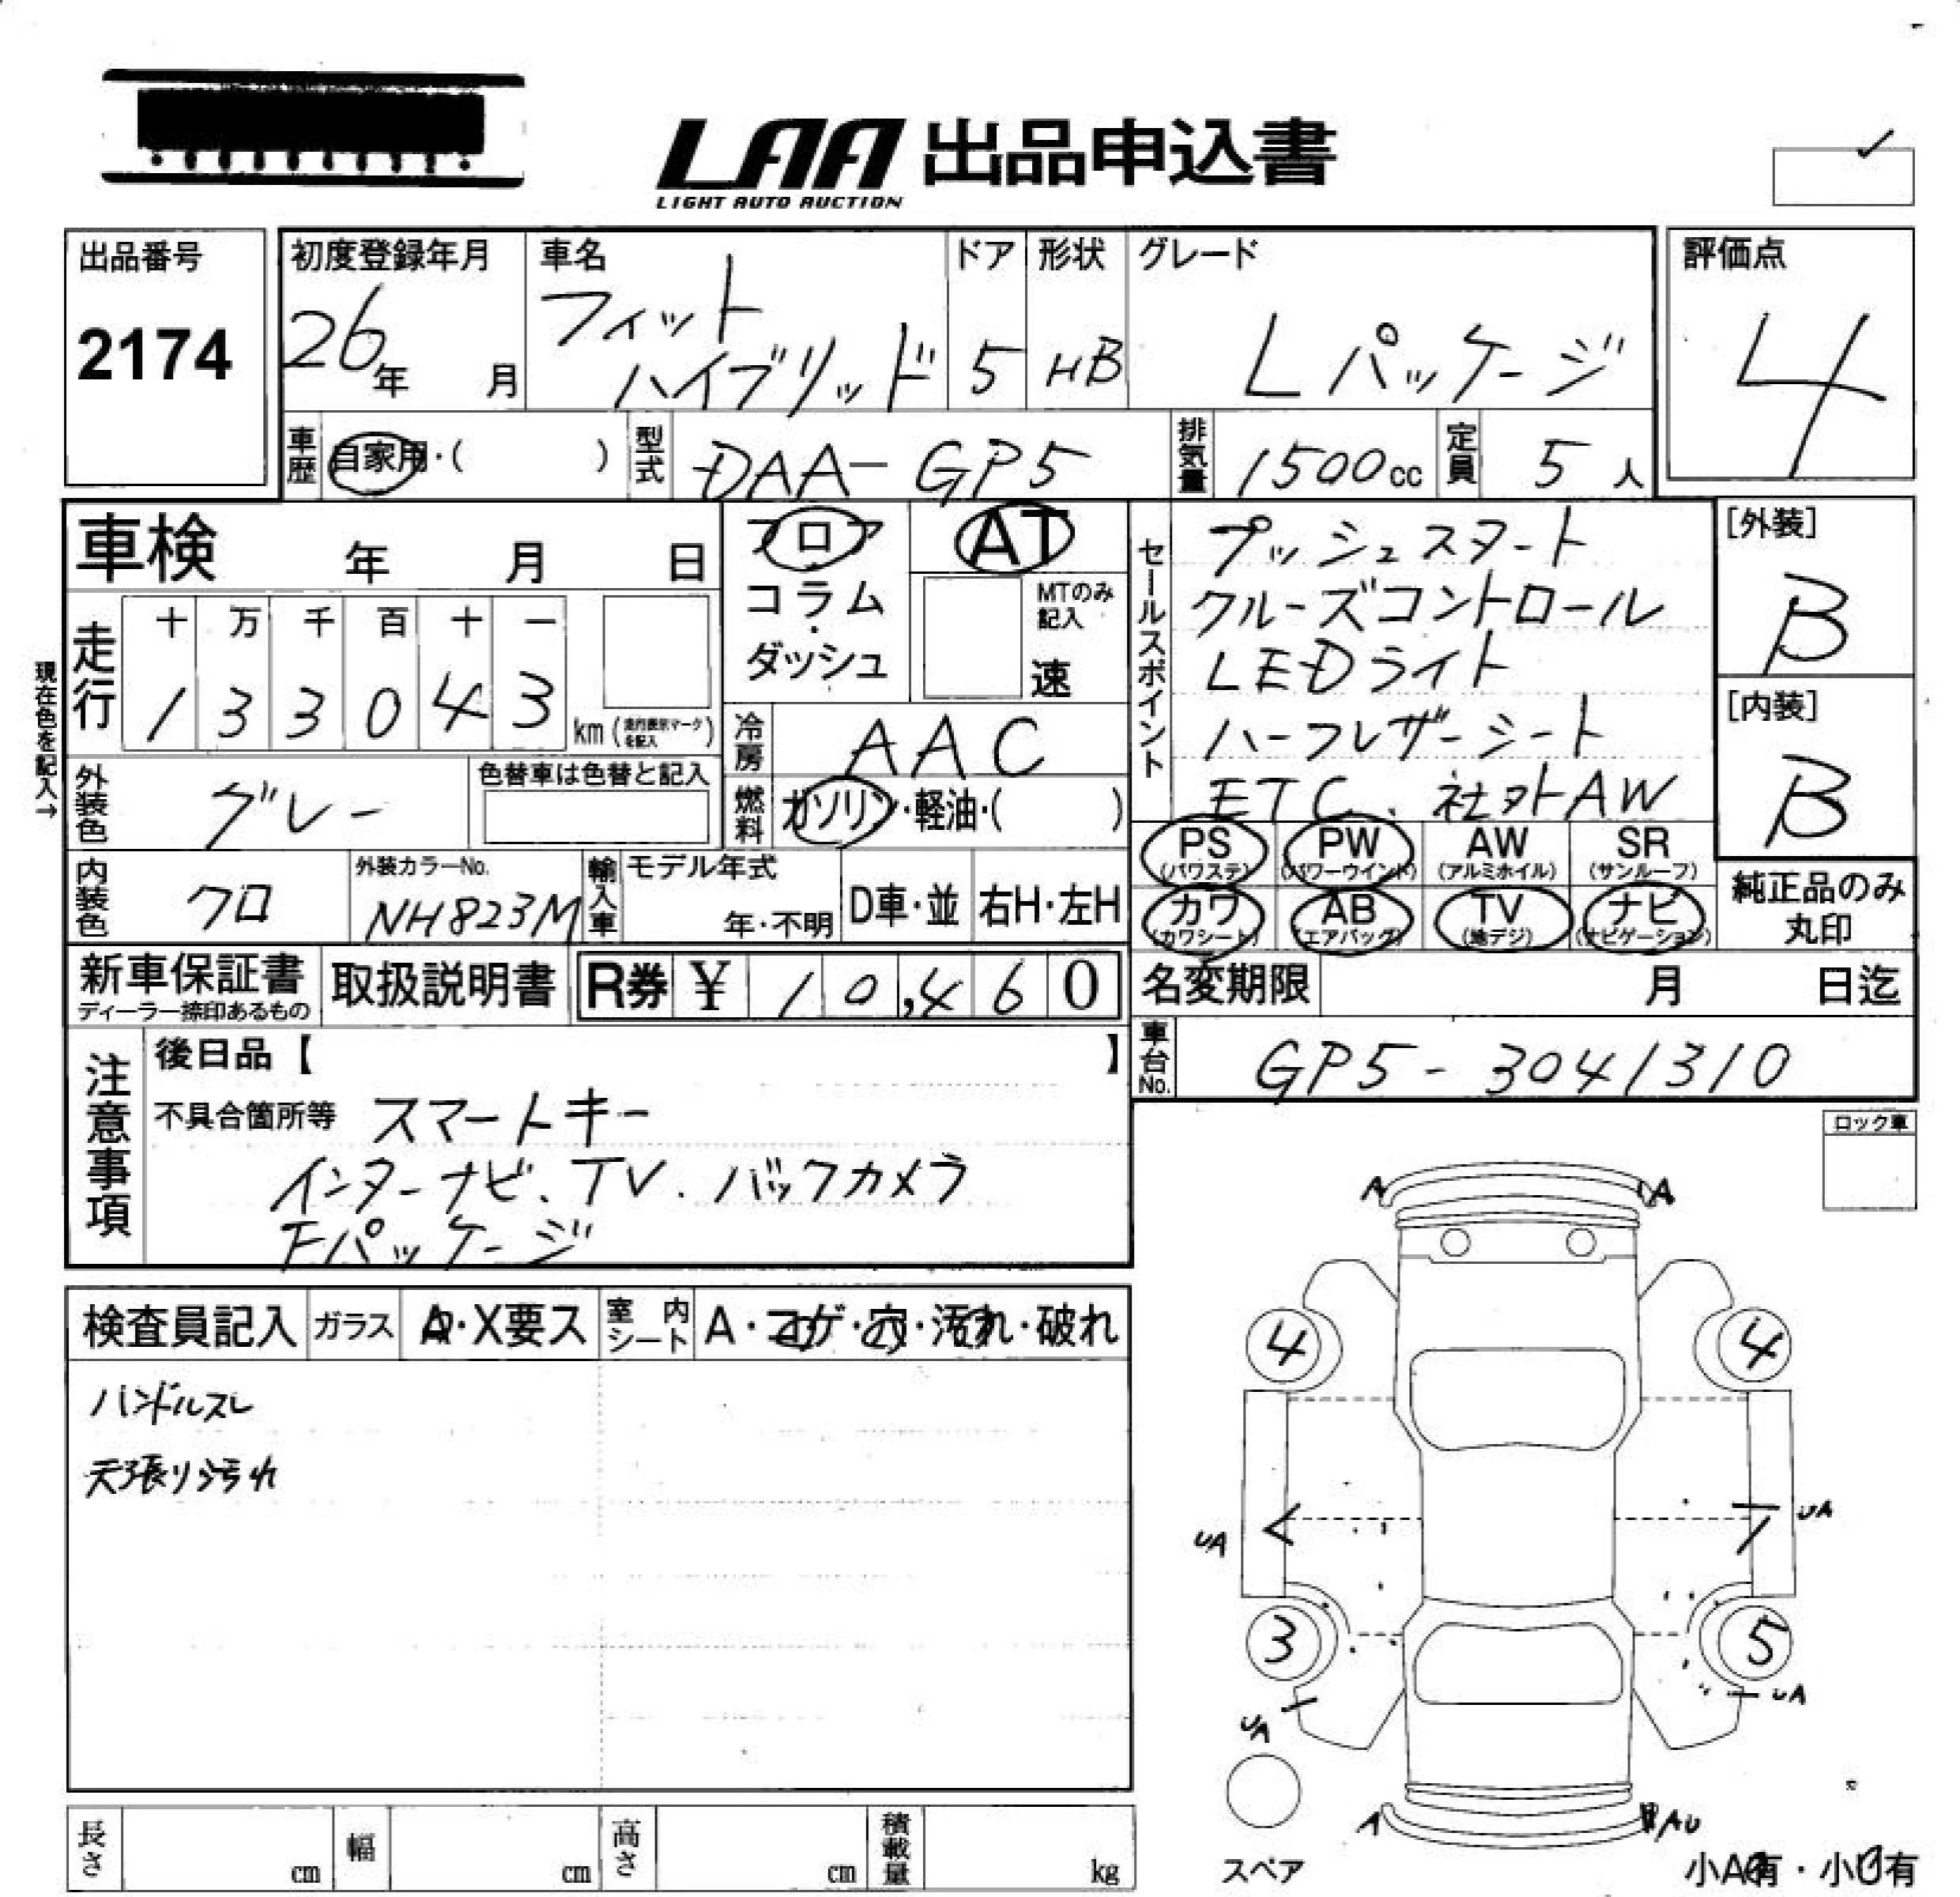 LAA 出品申込書
LIGHT AUTO AUCTION
出品番号
2174
初度登録年月
26年 月
車名
フィット
ハイブリッド
ドア
5
形状
HB
グレード
Lパッケージ
評価点
4
車歴 自家用・( )
型式 DAA-GP5
排気量 1500cc
定員 5人
車検 年 月 日
フロア
コラム
・
ダッシュ
AT
MTのみ
記入
速
セールスポイント
プッシュスタート
クルーズコントロール
LEDライト
ハーフレザーシート
ETC、社外AW
[外装]
B
[内装]
B
現在色を記入→
走行
十 万 千 百 十 一
1 3 3 0 4 3
km (走行表示マークを記入)
冷房 AAC
外装色 グレー
色替車は色替と記入
燃料 ガソリン・軽油・( )
PS (パワステ) PW (パワーウインド) AW (アルミホイル) SR (サンルーフ)
カワ (カワシート) AB (エアバッグ) TV (地デジ) ナビ (ナビゲーション)
純正品のみ
丸印
内装色 クロ
外装カラーNo.
NH823M
輸入車
モデル年式
年・不明
D車・並
右H・左H
新車保証書
ディーラー捺印あるもの
取扱説明書
R券 ¥ 10,460
名変期限 月 日迄
車台No. GP5-3041310
注意事項
後日品【 】
不具合箇所等 スマートキー
インターナビ、TV、バックカメラ
Fパッケージ
ロック車
検査員記入 ガラス A・X要ス 室内シート A・コゲ・穴・汚れ・破れ
ハンドルスレ
天張り汚れ
A A
4 4
UA UA
3 5
UA UA
A AU
スペア
小A有・小U有
長さ cm 幅 cm 高さ cm 積載量 kg